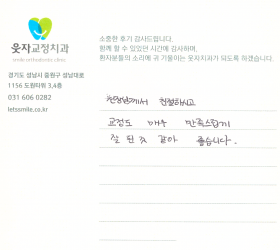 웃자교정치과
smile orthodontic clinic
경기도 성남시 중원구 성남대로
1156 도원타워 3,4층
031 606 0282
letssmile.co.kr
소중한 후기 감사드립니다.
함께 할 수 있었던 시간에 감사하며,
환자분들의 소리에 귀 기울이는 웃자치과가 되도록 하겠습니다.
선생님께서 친절하시고
교정도 매우 만족스럽게
잘 된 것 같아 좋습니다.